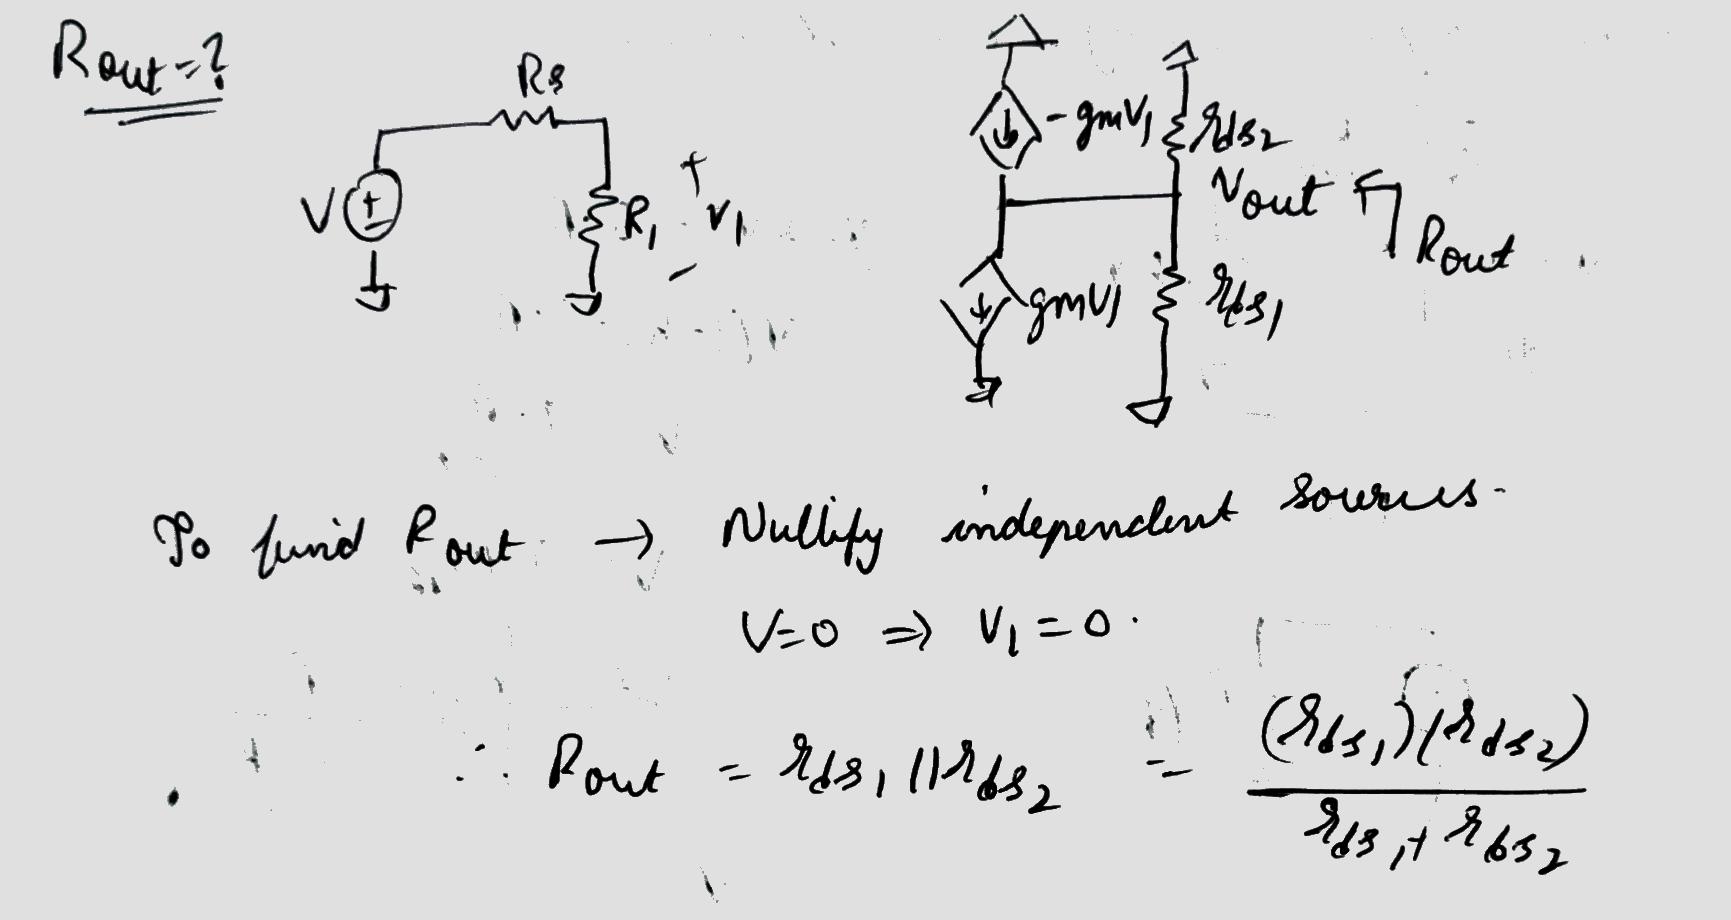 Rout=?
Rs
V
+
-
R1
+
V1
-
-gmV1
rds2
Vout
Rout
gmV1
rds1
To find Rout → Nullify independent sources.
V=0 ⇒ V1=0.
∴ Rout = rds1 || rds2 = (rds1)(rds2)
rds1+rds2